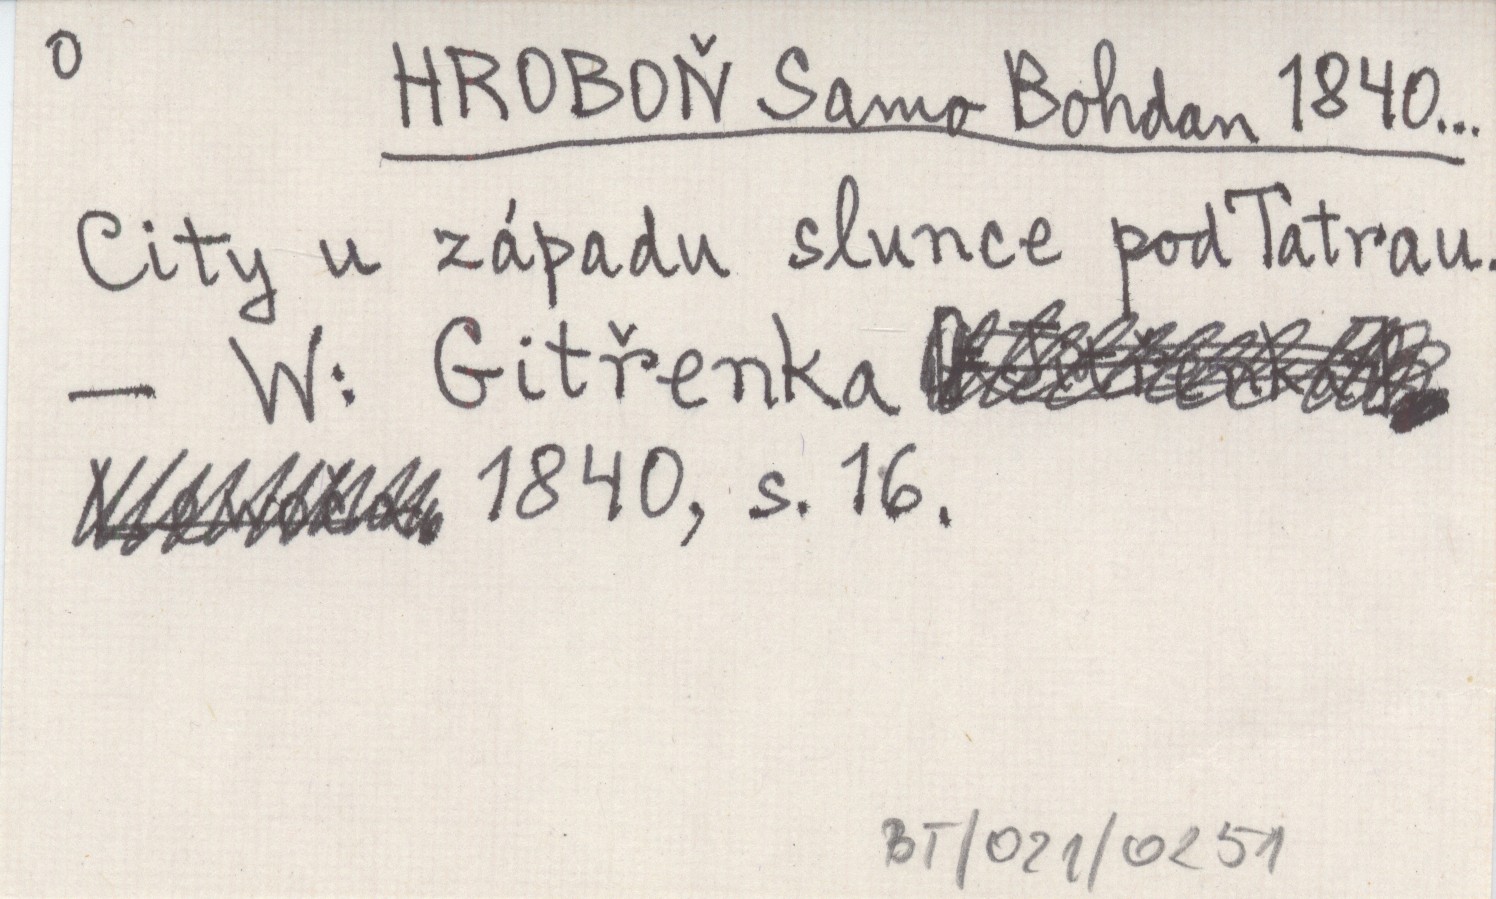 O HROBOŇ Samo Bohdan 1840...
City u západu slunce pod Tatrau.
— W: Gitřenka
1840, s. 16.
BT/021/0251